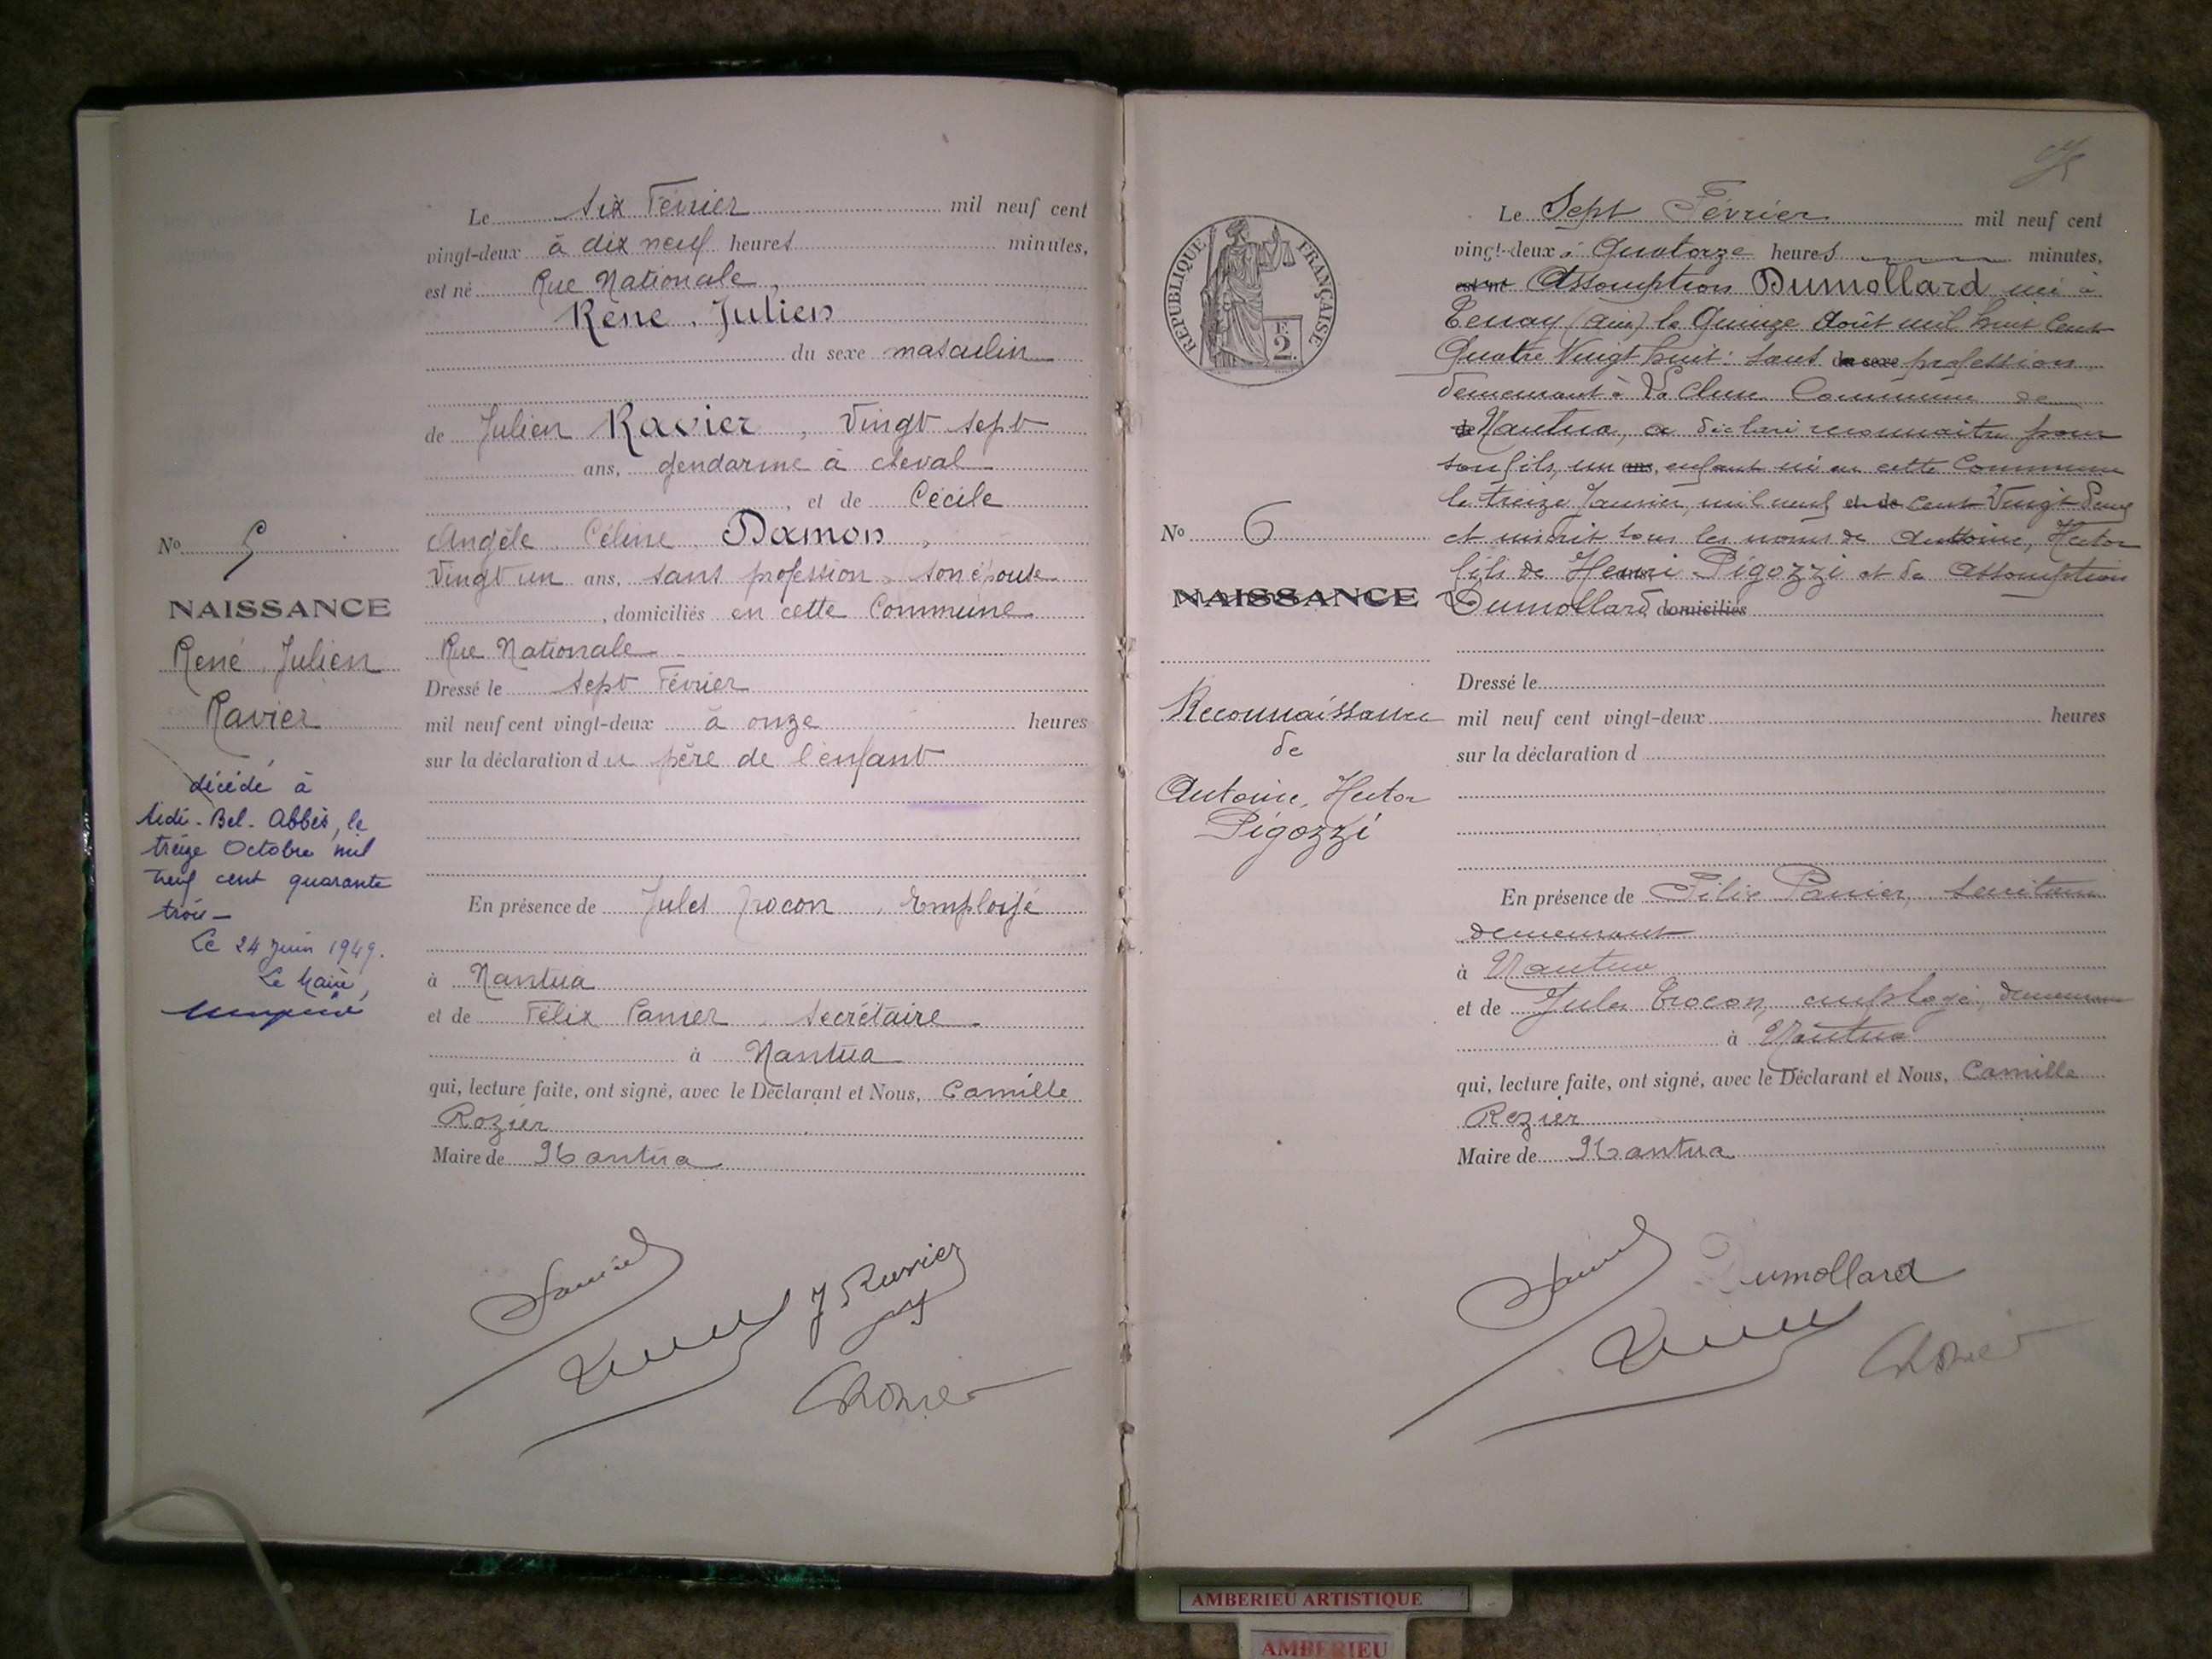 Le six Février mil neuf cent
vingt-deux à dix neuf heures minutes,
est né Rue Nationale,
René, Julien
du sexe masculin
de Julien Ravier, Vingt sept
ans, gendarme à cheval
, et de Cécile
Angèle Céline Damon,
Vingt un ans, sans profession, son épouse
, domiciliés en cette Commune
Rue Nationale
Dressé le sept Février
mil neuf cent vingt-deux à onze heures
sur la déclaration du père de l'enfant
En présence de Jules Trocon, Employé
à Nantua
et de Félix Panier, Secrétaire
à Nantua
qui, lecture faite, ont signé, avec le Déclarant et Nous, Camille
Rozier
Maire de Nantua
J Ravier
No 5
NAISSANCE
René, Julien
Ravier
décédé à
Sidi-Bel-Abbès, le
treize Octobre mil
neuf cent quarante
trois
Le 24 Juin 1949.
Le Maire,
RÉPUBLIQUE FRANÇAISE
2 F.
No 6
NAISSANCE
Reconnaissance
de
Antoine, Hector
Pigozzi
Le Sept Février mil neuf cent
vingt-deux à Quatorze heures minutes,
est né Assomption Dumollard née à
Tenay (Ain) le Quinze Août mil huit cent
Quatre Vingt huit: sans du sexe profession
demeurant à La Cluse Commune de
de Nantua, a déclaré reconnaitre pour
son fils, un ans, enfant né en cette Commune
le treize Janvier, mil neuf et de cent Vingt Deux
et inscrit sous les noms de Antoine, Hector
fils de Henri Pigozzi et de Assomption
Dumollard domiciliés
Dressé le
mil neuf cent vingt-deux heures
sur la déclaration d
En présence de Félix Panier, Secrétaire
demeurant
à Nantua
et de Jules Trocon, employé, demeurant
à Nantua
qui, lecture faite, ont signé, avec le Déclarant et Nous, Camille
Rozier
Maire de Nantua
Dumollard
AMBERIEU ARTISTIQUE
AMBERIEU